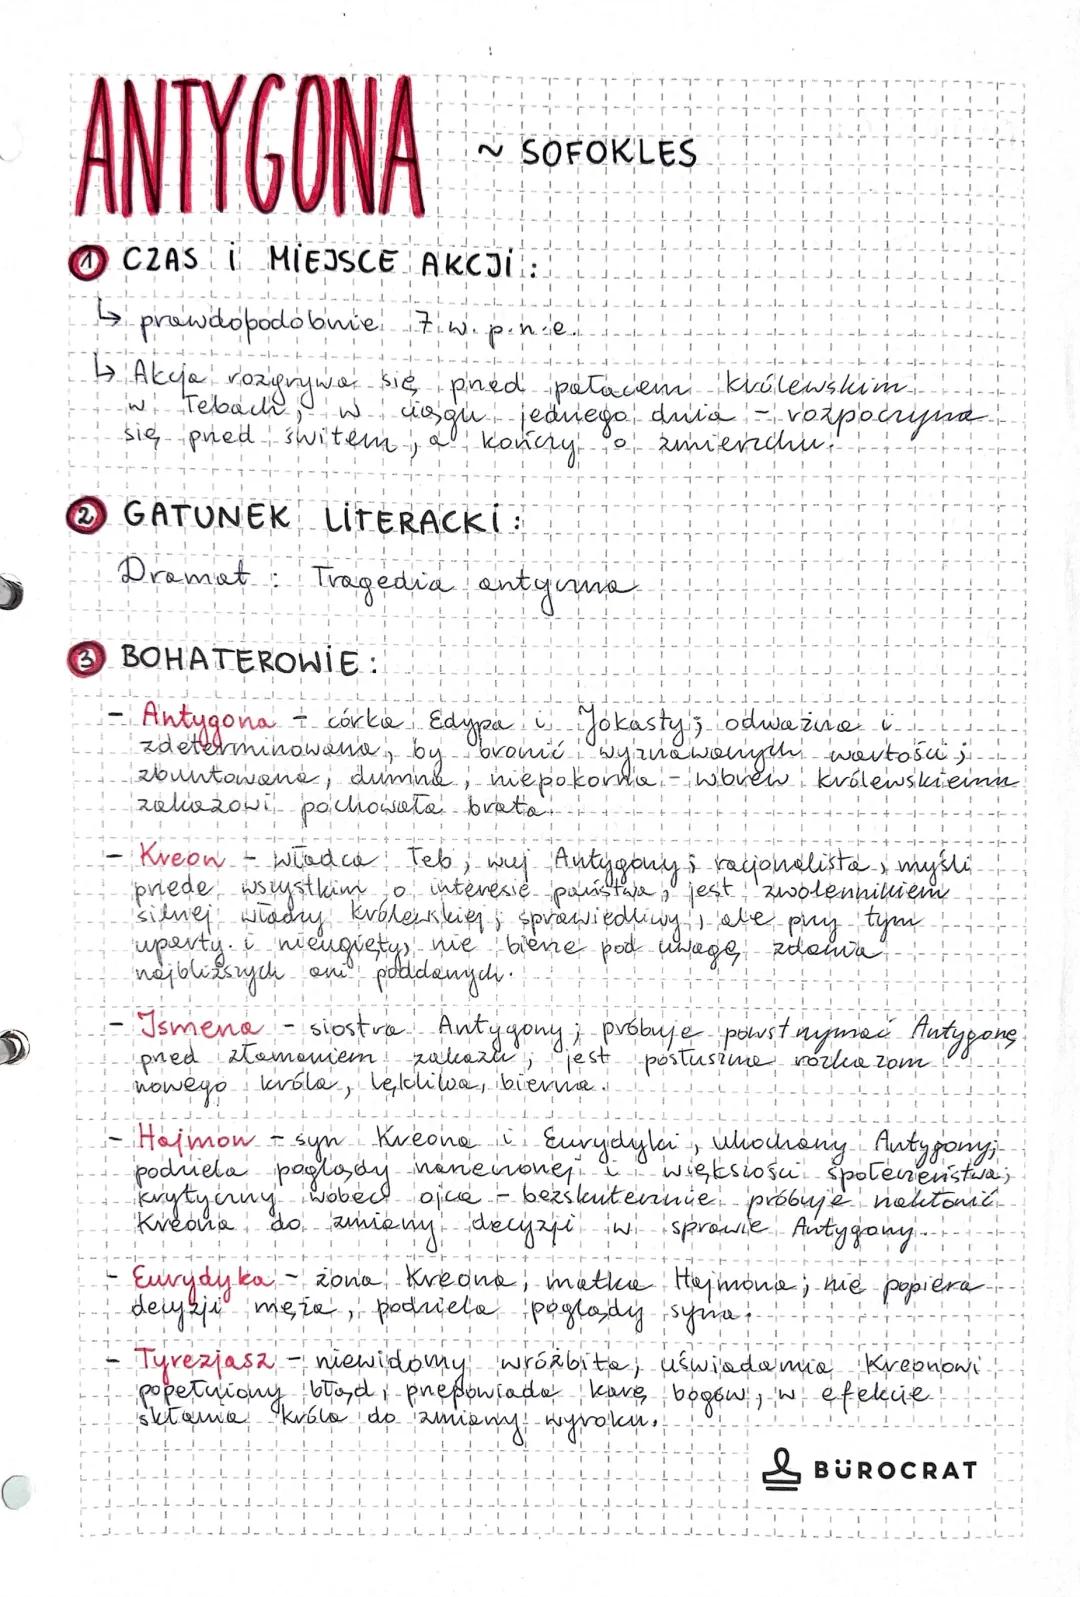 ANTYGONA ~ SOFOKLES
1 CZAS i MIEJSCE AKCJI:
↳ prawdopodobnie 7 w. p.n.e.
↳ Akcja rozgrywa się przed pałacem królewskim
w Tebach, w ciągu jednego dnia - rozpoczyna
się przed świtem, a kończy o zmierzchu.
2 GATUNEK LITERACKI:
Dramat: Tragedia antyczna
3 BOHATEROWIE:
- Antygona - córka Edypa i Jokasty; odważna i
zdeterminowana, by bronić wyznawanych wartości;
zbuntowana, dumna, niepokorna - wbrew królewskiemu
zakazowi pochowała brata.
- Kreon - władca Teb, wuj Antygony; racjonalista, myśli
przede wszystkim o interesie państwa, jest zwolennikiem
silnej władzy królewskiej; sprawiedliwy, ale przy tym
uparty i nieugięty, nie bierze pod uwagę zdania
najbliższych ani poddanych.
- Ismena - siostra Antygony; próbuje powstrzymać Antygonę
przed złamaniem zakazu, jest posłuszna rozkazom
nowego króla, lękliwa, bierna.
- Hajmon - syn Kreona i Eurydyki, ukochany Antygony;
podziela poglądy narzeczonej i większości społeczeństwa;
krytyczny wobec ojca - bezskutecznie próbuje nakłonić
Kreona do zmiany decyzji w sprawie Antygony.
- Eurydyka - żona Kreona, matka Hajmona; nie popiera
decyzji męża, podziela poglądy syna.
- Tyrezjasz - niewidomy wróżbita; uświadamia Kreonowi
popełniony błąd, przepowiada karę bogów, w efekcie
skłania króla do zmiany wyroku.
BÜROCRAT